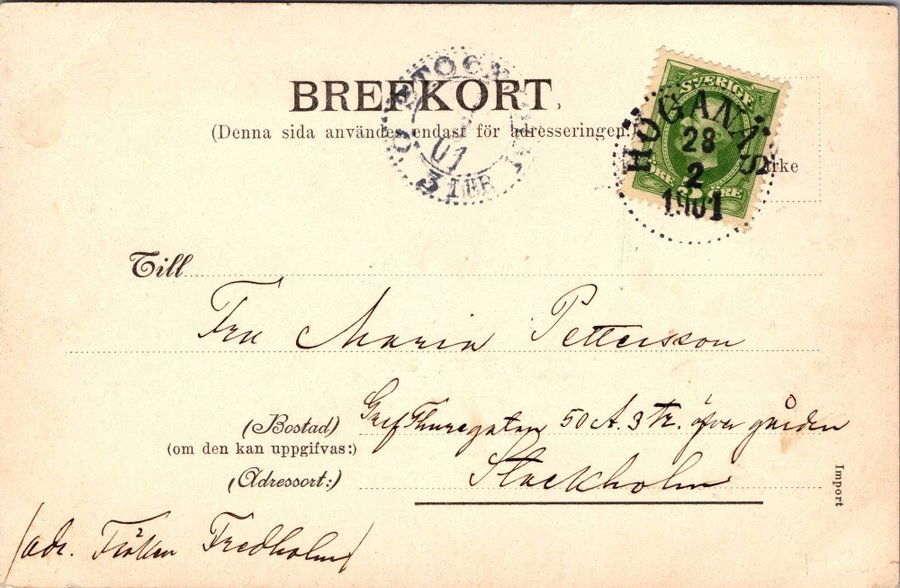 BREFKORT.
(Denna sida användes endast för adresseringen.)
STOCK
01
3 1
SVERIGE
HÖGANÄS
28
2
1901
ÖRE 5 ÖRE
rke
Till
Fru Maria Pettersson
(Bostad) Gref Thuregatan 50 A. 3 tr. öfver gården
(om den kan uppgifvas:)
(Adressort:) Stockholm
Import
(adr. Fröken Fredholm)